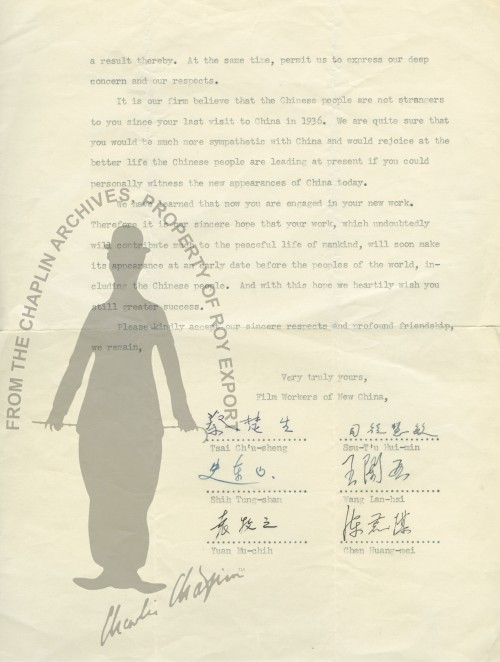 a result thereby. At the same time, permit us to express our deep
concern and our respects.
It is our firm believe that the Chinese people are not strangers
to you since your last visit to China in 1936. We are quite sure that
you would be such more sympathetic with China and would rejoice at the
better life the Chinese people are leading at present if you could
personally witness the new appearances of China today.
We have learned that now you are engaged in your new work.
Therefore it is our sincere hope that your work, which undoubtedly
will contribute much to the peaceful life of mankind, will soon make
its appearance at an early date before the peoples of the world, in-
cluding the Chinese people. And with this hope we heartily wish you
still greater success.
Please kindly accept our sincere respects and profound friendship,
we remain,
Very truly yours,
Film Workers of New China,
蔡楚生 司徒慧敏
Tsai Ch'u-sheng Ssu-T'u Hui-min
史东山
Shih Tung-shan Wang Lan-hsi
袁牧之 陈荒煤
Yuan Mu-chih Chen Huang-mei
FROM THE CHAPLIN ARCHIVES, PROPERTY OF ROY EXPORT
Charlie Chaplin™